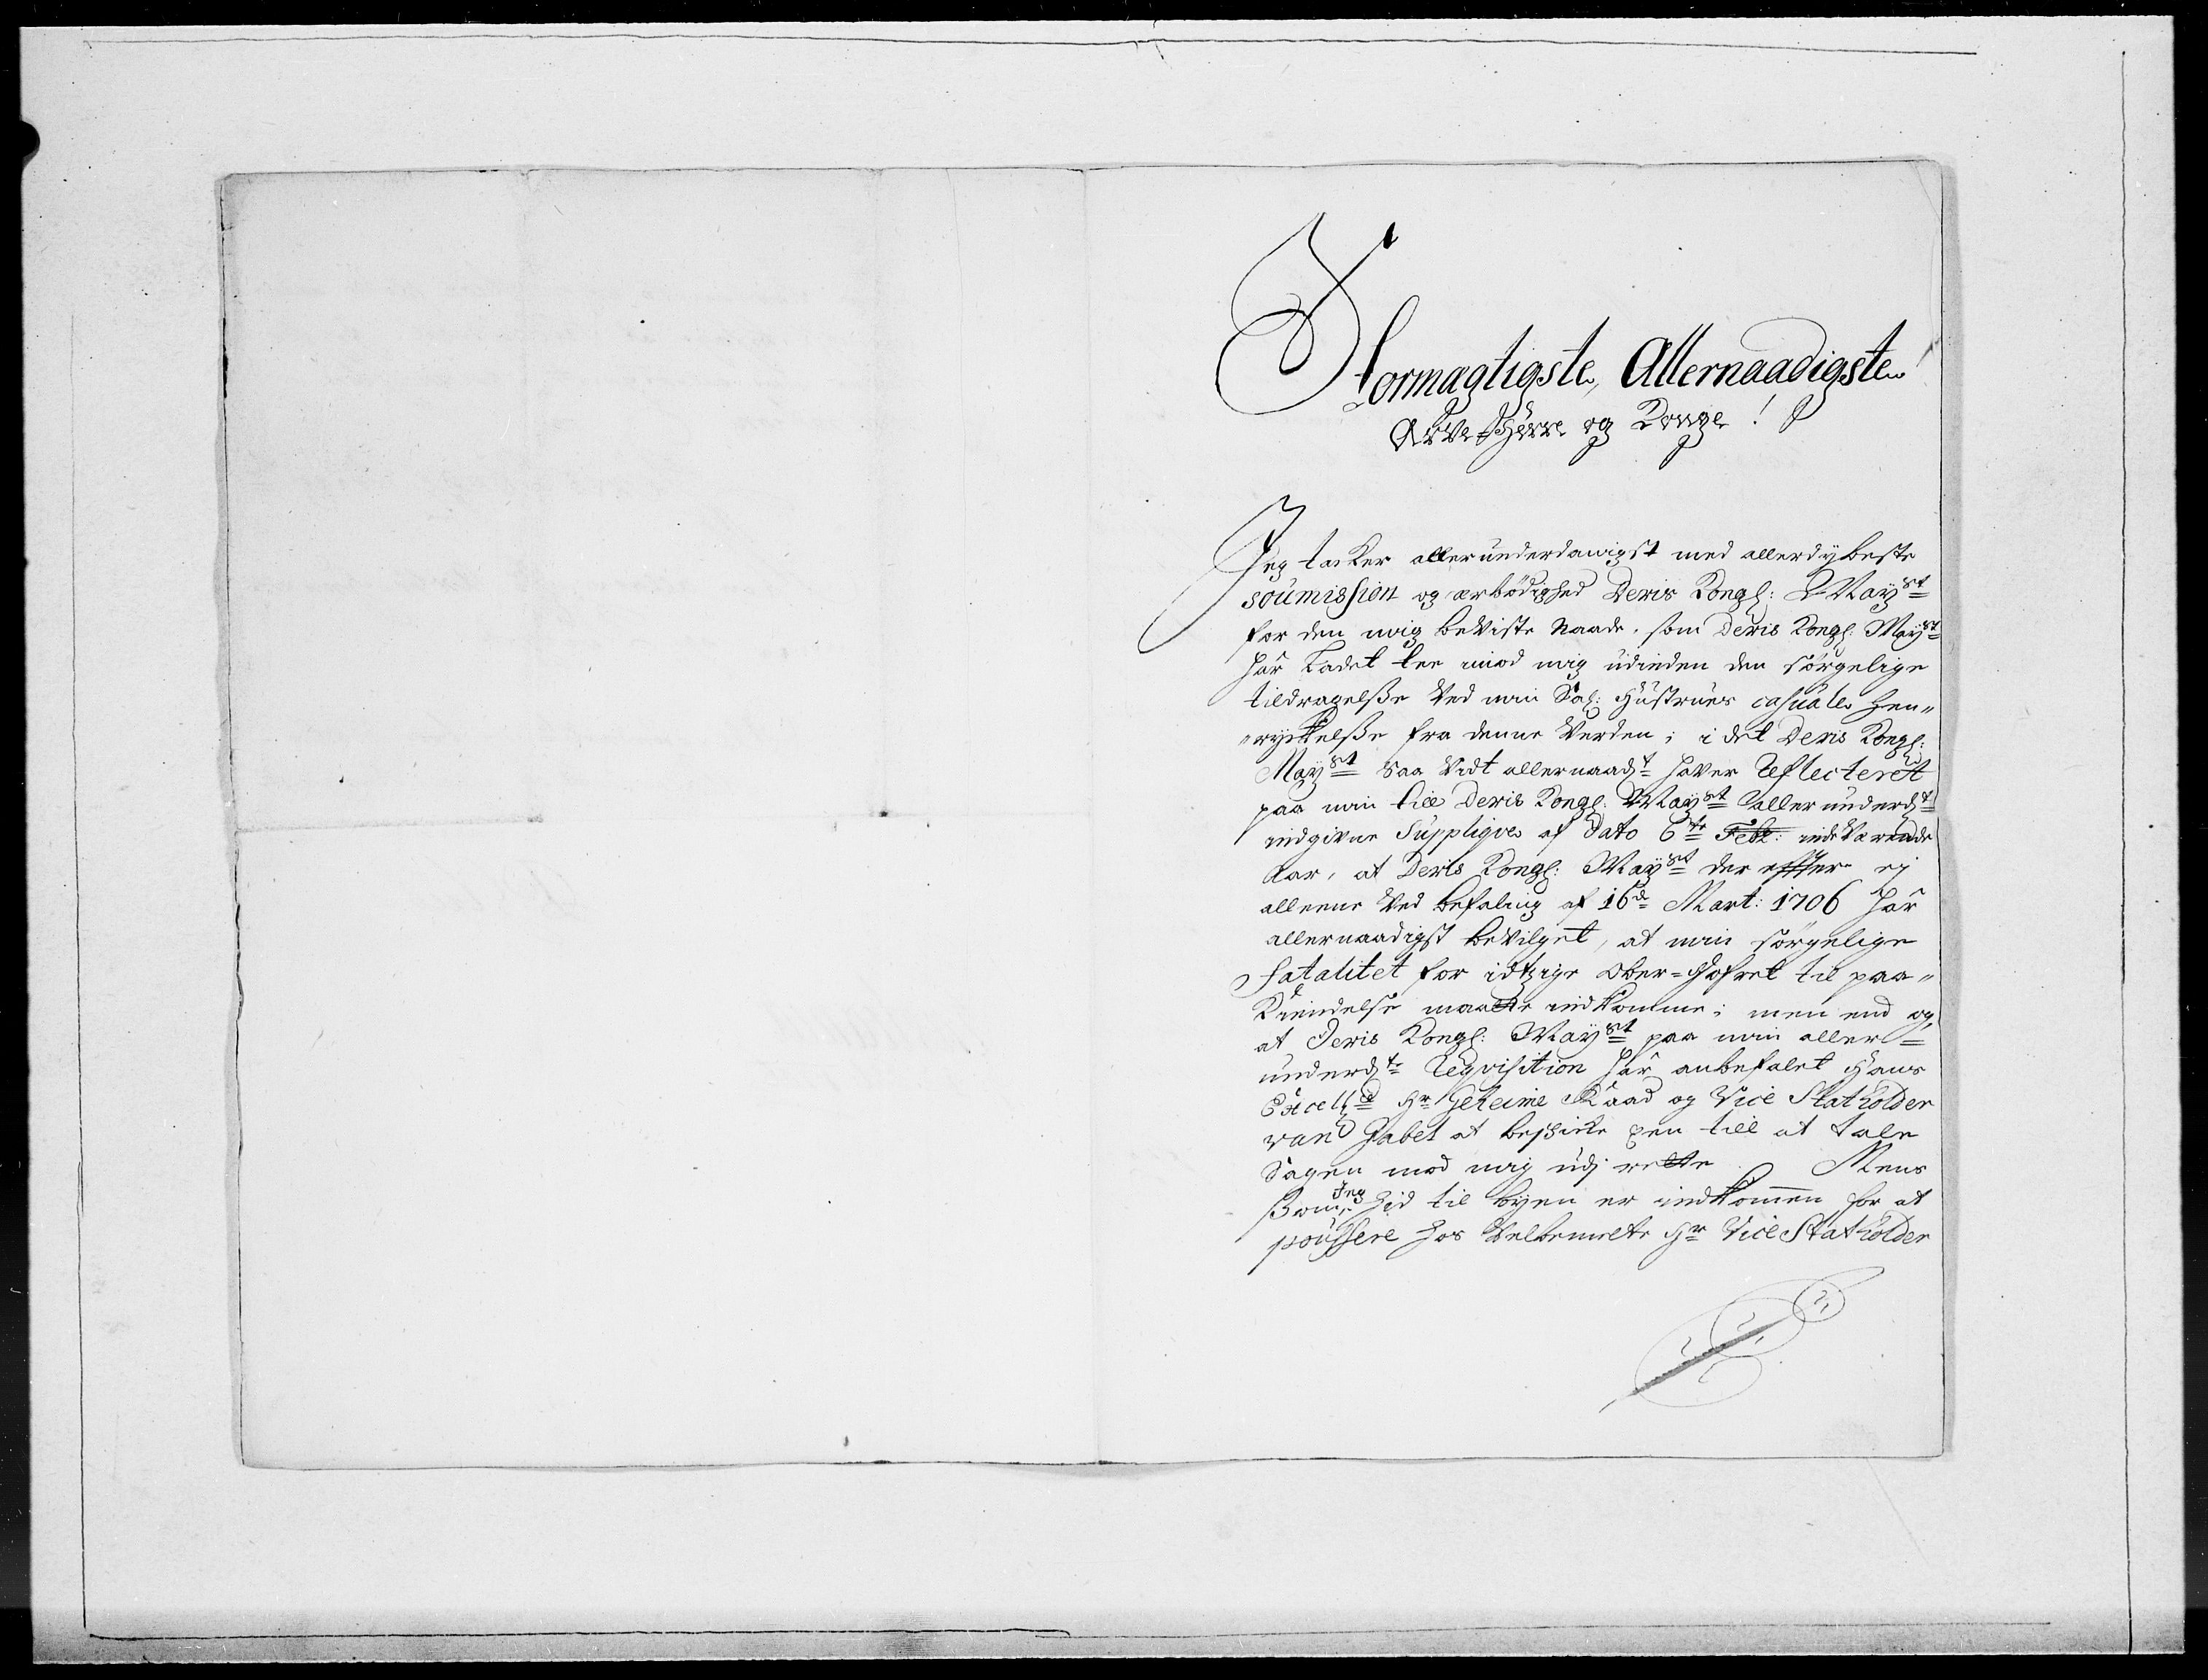 Stormagtigste, Allernaadigste
Arve-Herre og Konge!
Jeg tacker allerunderdanigst med allerdybeste
soumission og ærbödighed Deris Kongl: Mayst
for den mig beviste Naade, som Deris Kongl: Mayst
har ladet tee imod mig udinden den sörgelige
tildragelsse Ved min Sal: Hustrues casuale hen„
„ryckelsse fra denne Verden; i det Deris Kongl:
Mayst saa vidt allernaadt haver Reflecteret
paa min till Deris Kongl: Mayst allerunderdt
indgivne Suppliqve af Dato 6te Febr: indeværende
Aar, at Deris Kongl: Mayst der effter ej
alleene Ved befaling af 16de Mart: 1706 har
allernaadigst bevilget, at min sörgelige
Fatalitet for idtzige Ober-Hofret til paa„
Kiendelse maatte indkomme; men end og,
at Deris Kongl: Mayst paa min aller=
underdte Reqvisition har anbefalet Hans
Excelld Hr Geheime Raad og Vice Statholder
von Gabel at beschicke een till at tale
Sagen mod mig udj rette Mens
ssom Jeg hid til byen er indkommen for at
poussere hos Velbemelte Hr Vice Statholder